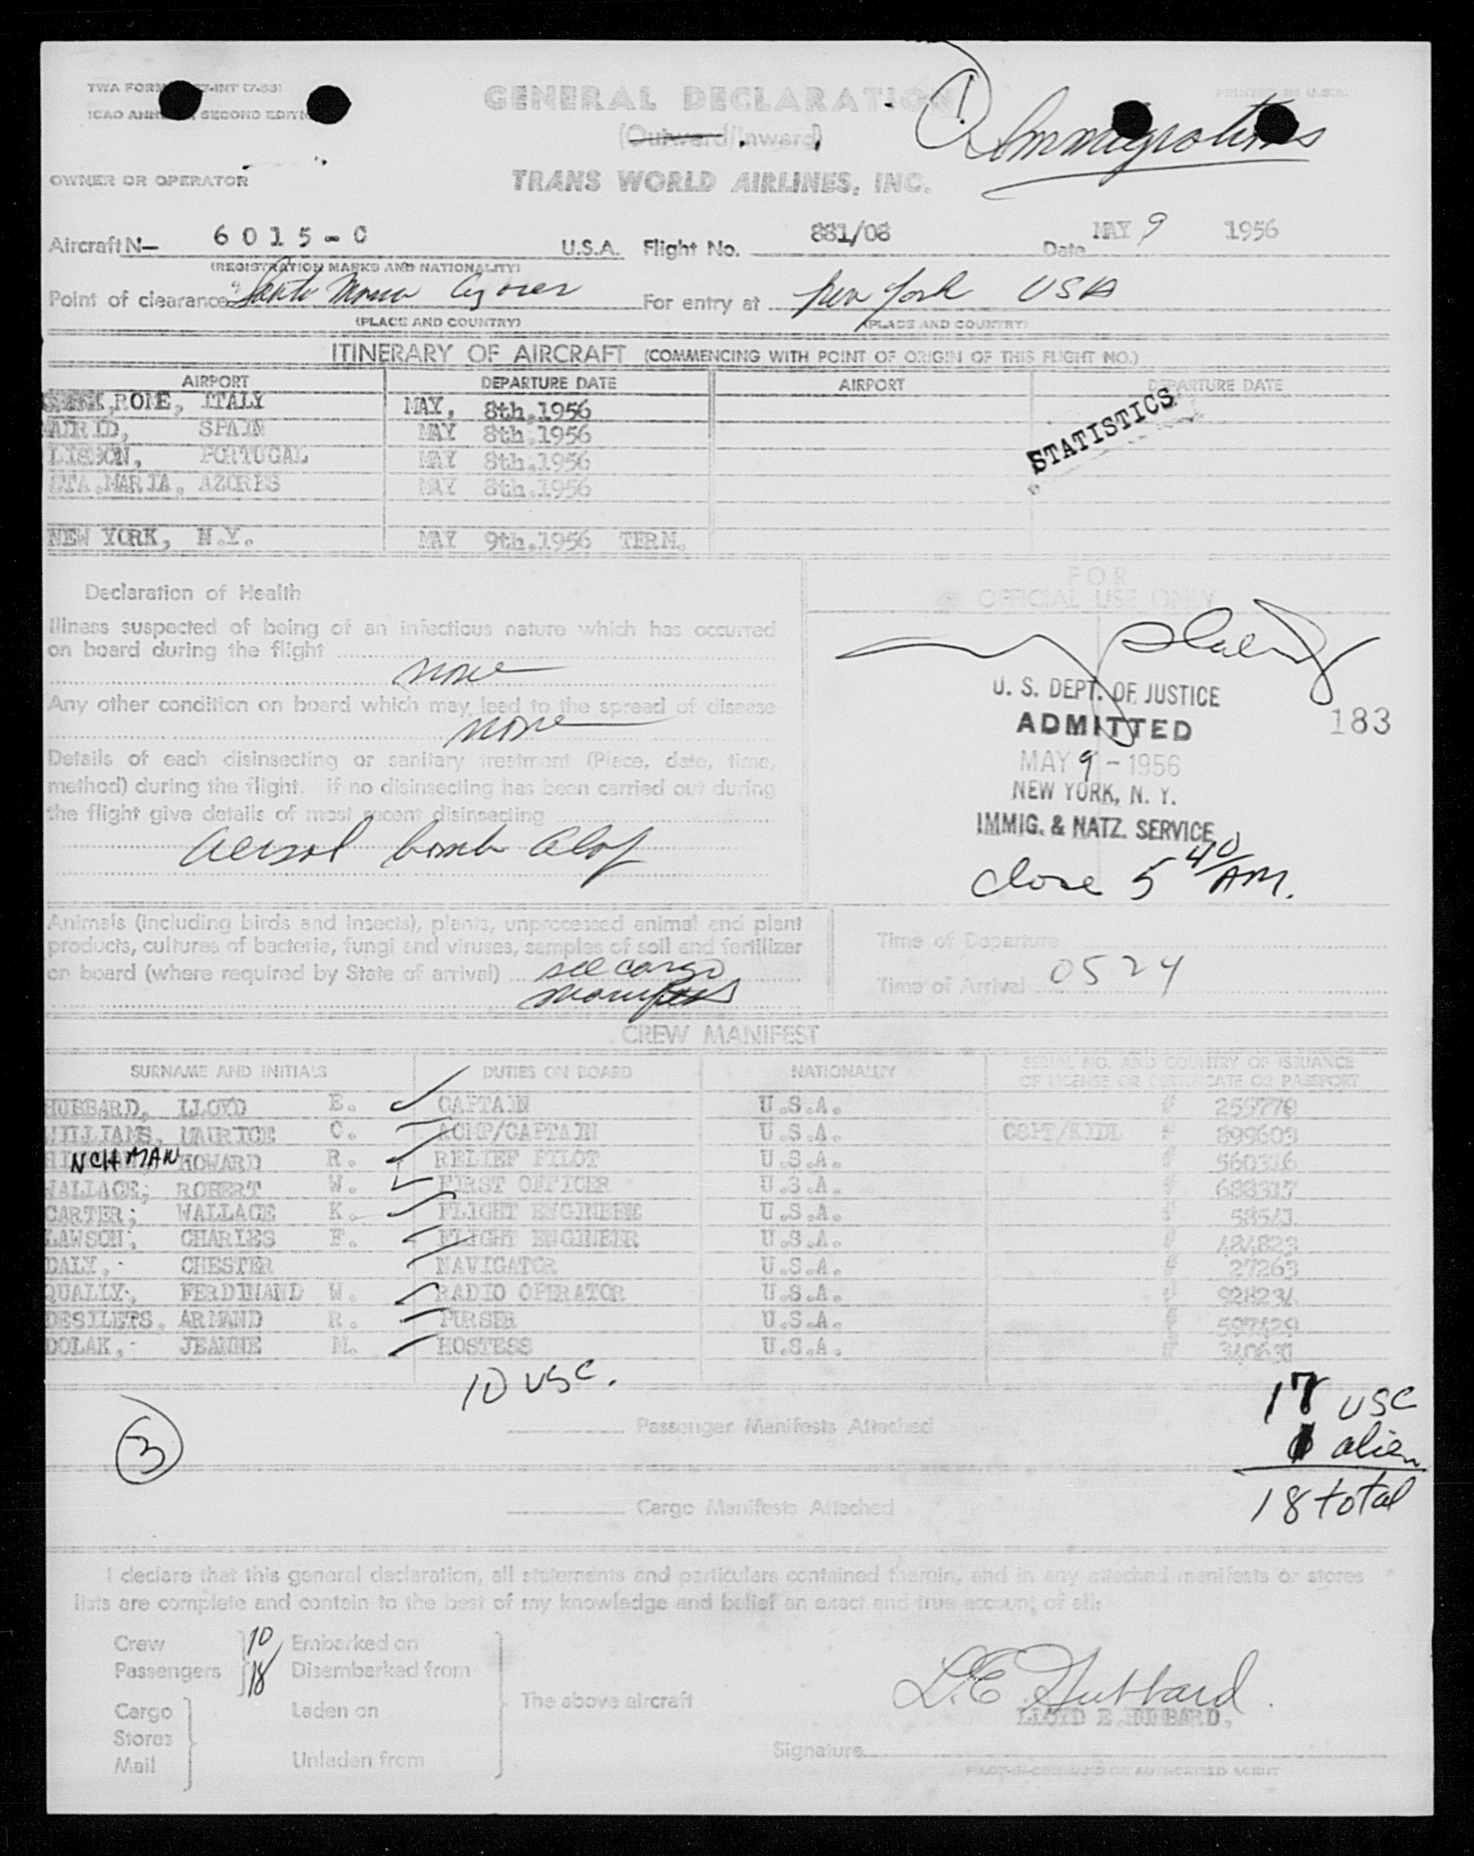 TWA FORM INT (7-53)
GENERAL DECLARATION
1
Immigration
PRINTED IN U.S.A.
ICAO ANNEX SECOND EDITION
(Outward/Inward)
OWNER OR OPERATOR
TRANS WORLD AIRLINES, INC.
Aircraft N— 6015-C U.S.A. Flight No. 881/08 Date MAY 9 1956
(REGISTRATION MARKS AND NATIONALITY)
Point of clearance Santa Maria Azores For entry at New York USA
(PLACE AND COUNTRY) (PLACE AND COUNTRY)
ITINERARY OF AIRCRAFT (COMMENCING WITH POINT OF ORIGIN OF THIS FLIGHT NO.)
AIRPORT DEPARTURE DATE AIRPORT DEPARTURE DATE
ROME, ITALY MAY, 8th,1956
STATISTICS
SPAIN MAY 8th,1956
LISBON, PORTUGAL MAY 8th,1956
STA.MARIA, AZORES MAY 8th,1956
NEW YORK, N.Y. MAY 9th,1956 TERM.
FOR
OFFICIAL USE ONLY
Declaration of Health
Illness suspected of being of an infectious nature which has occurred
on board during the flight
none
Any other condition on board which may lead to the spread of disease
none
Details of each disinsecting or sanitary treatment (Place, date, time,
method) during the flight. If no disinsecting has been carried out during
the flight give details of most recent disinsecting
aerosol bomb
U. S. DEPT. OF JUSTICE
ADMITTED 183
MAY 9 - 1956
NEW YORK, N. Y.
IMMIG. & NATZ. SERVICE
close 5 40/AM.
Animals (including birds and insects), plants, unprocessed animal and plant
products, cultures of bacteria, fungi and viruses, samples of soil and fertilizer
on board (where required by State of arrival) see cargo
manifest
Time of Departure
Time of Arrival 0524
CREW MANIFEST
SURNAME AND INITIALS DUTIES ON BOARD NATIONALITY SERIAL NO. AND COUNTRY OF ISSUANCE
OF LICENSE OR CERTIFICATE OR PASSPORT
HUBBARD, LLOYD E. CAPTAIN U.S.A. # 255779
WILLIAMS, MAURICE C. ACMP/CAPTAIN U.S.A. # 899603
NCHMAN HOWARD R. RELIEF PILOT U.S.A. # 560316
WALLACE, ROBERT W. FIRST OFFICER U.S.A. # 688317
CARTER, WALLACE K. FLIGHT ENGINEER U.S.A. #
LAWSON, CHARLES F. FLIGHT ENGINEER U.S.A. # 484823
DALY, CHESTER NAVIGATOR U.S.A. # 27263
QUALLY, FERDINAND W. RADIO OPERATOR U.S.A. # 928234
DESILETS, ARMAND R. PURSER U.S.A. # 597429
DOLAK, JEANNE M. HOSTESS U.S.A. # 340630
10 USC.
17 USC
Passenger Manifests Attached
3
1 alien
18 total
Cargo Manifests Attached
I declare that this general declaration, all statements and particulars contained therein, and in any attached manifests or stores
lists are complete and contain to the best of my knowledge and belief an exact and true account of all:
Crew 10 Embarked on
Passengers 18 Disembarked from
Cargo Laden on
The above aircraft
Stores
Mail Unladen from
L.E. Hubbard
LLOYD E. HUBBARD,
Signature
PILOT-IN-COMMAND OR AUTHORIZED AGENT